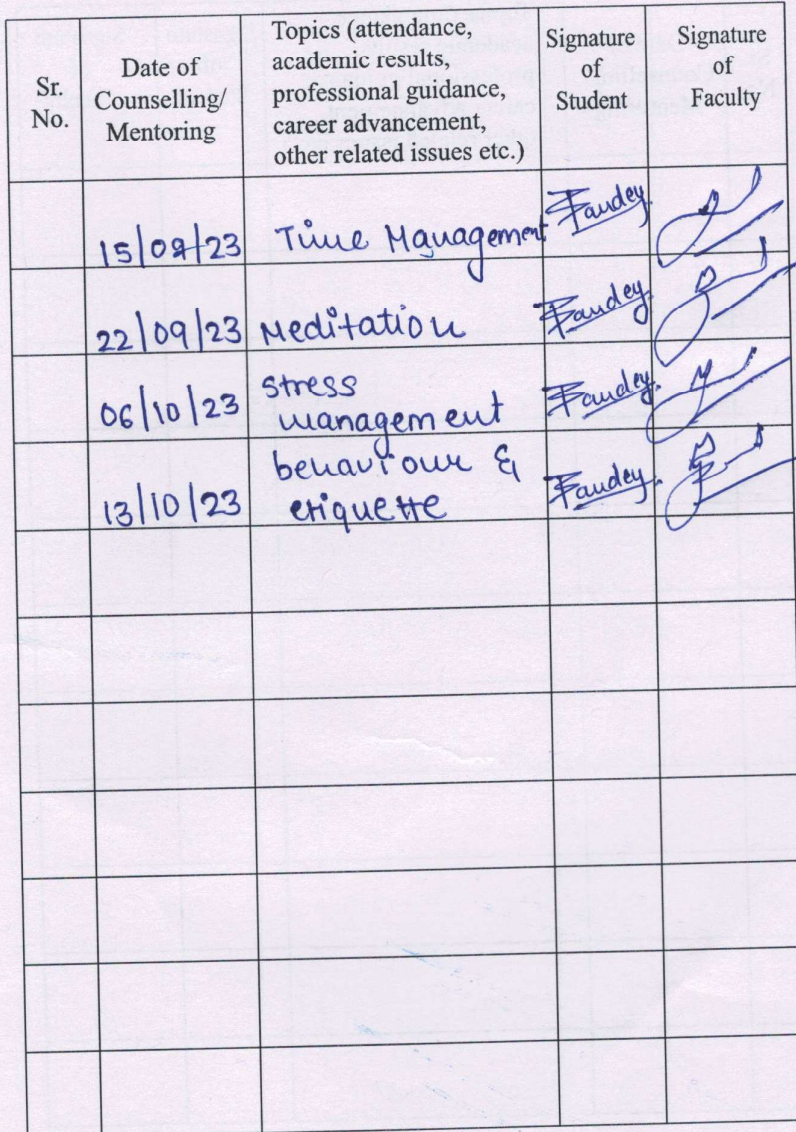 Sr. No.
Date of Counselling/ Mentoring
Topics (attendance, academic results, professional guidance, career advancement, other related issues etc.)
Signature of Student
Signature of Faculty
15/09/23 Time Management Pandey
22/09/23 Meditation Pandey.
06/10/23 stress management Pandey.
13/10/23 behaviour & etiquette Pandey.